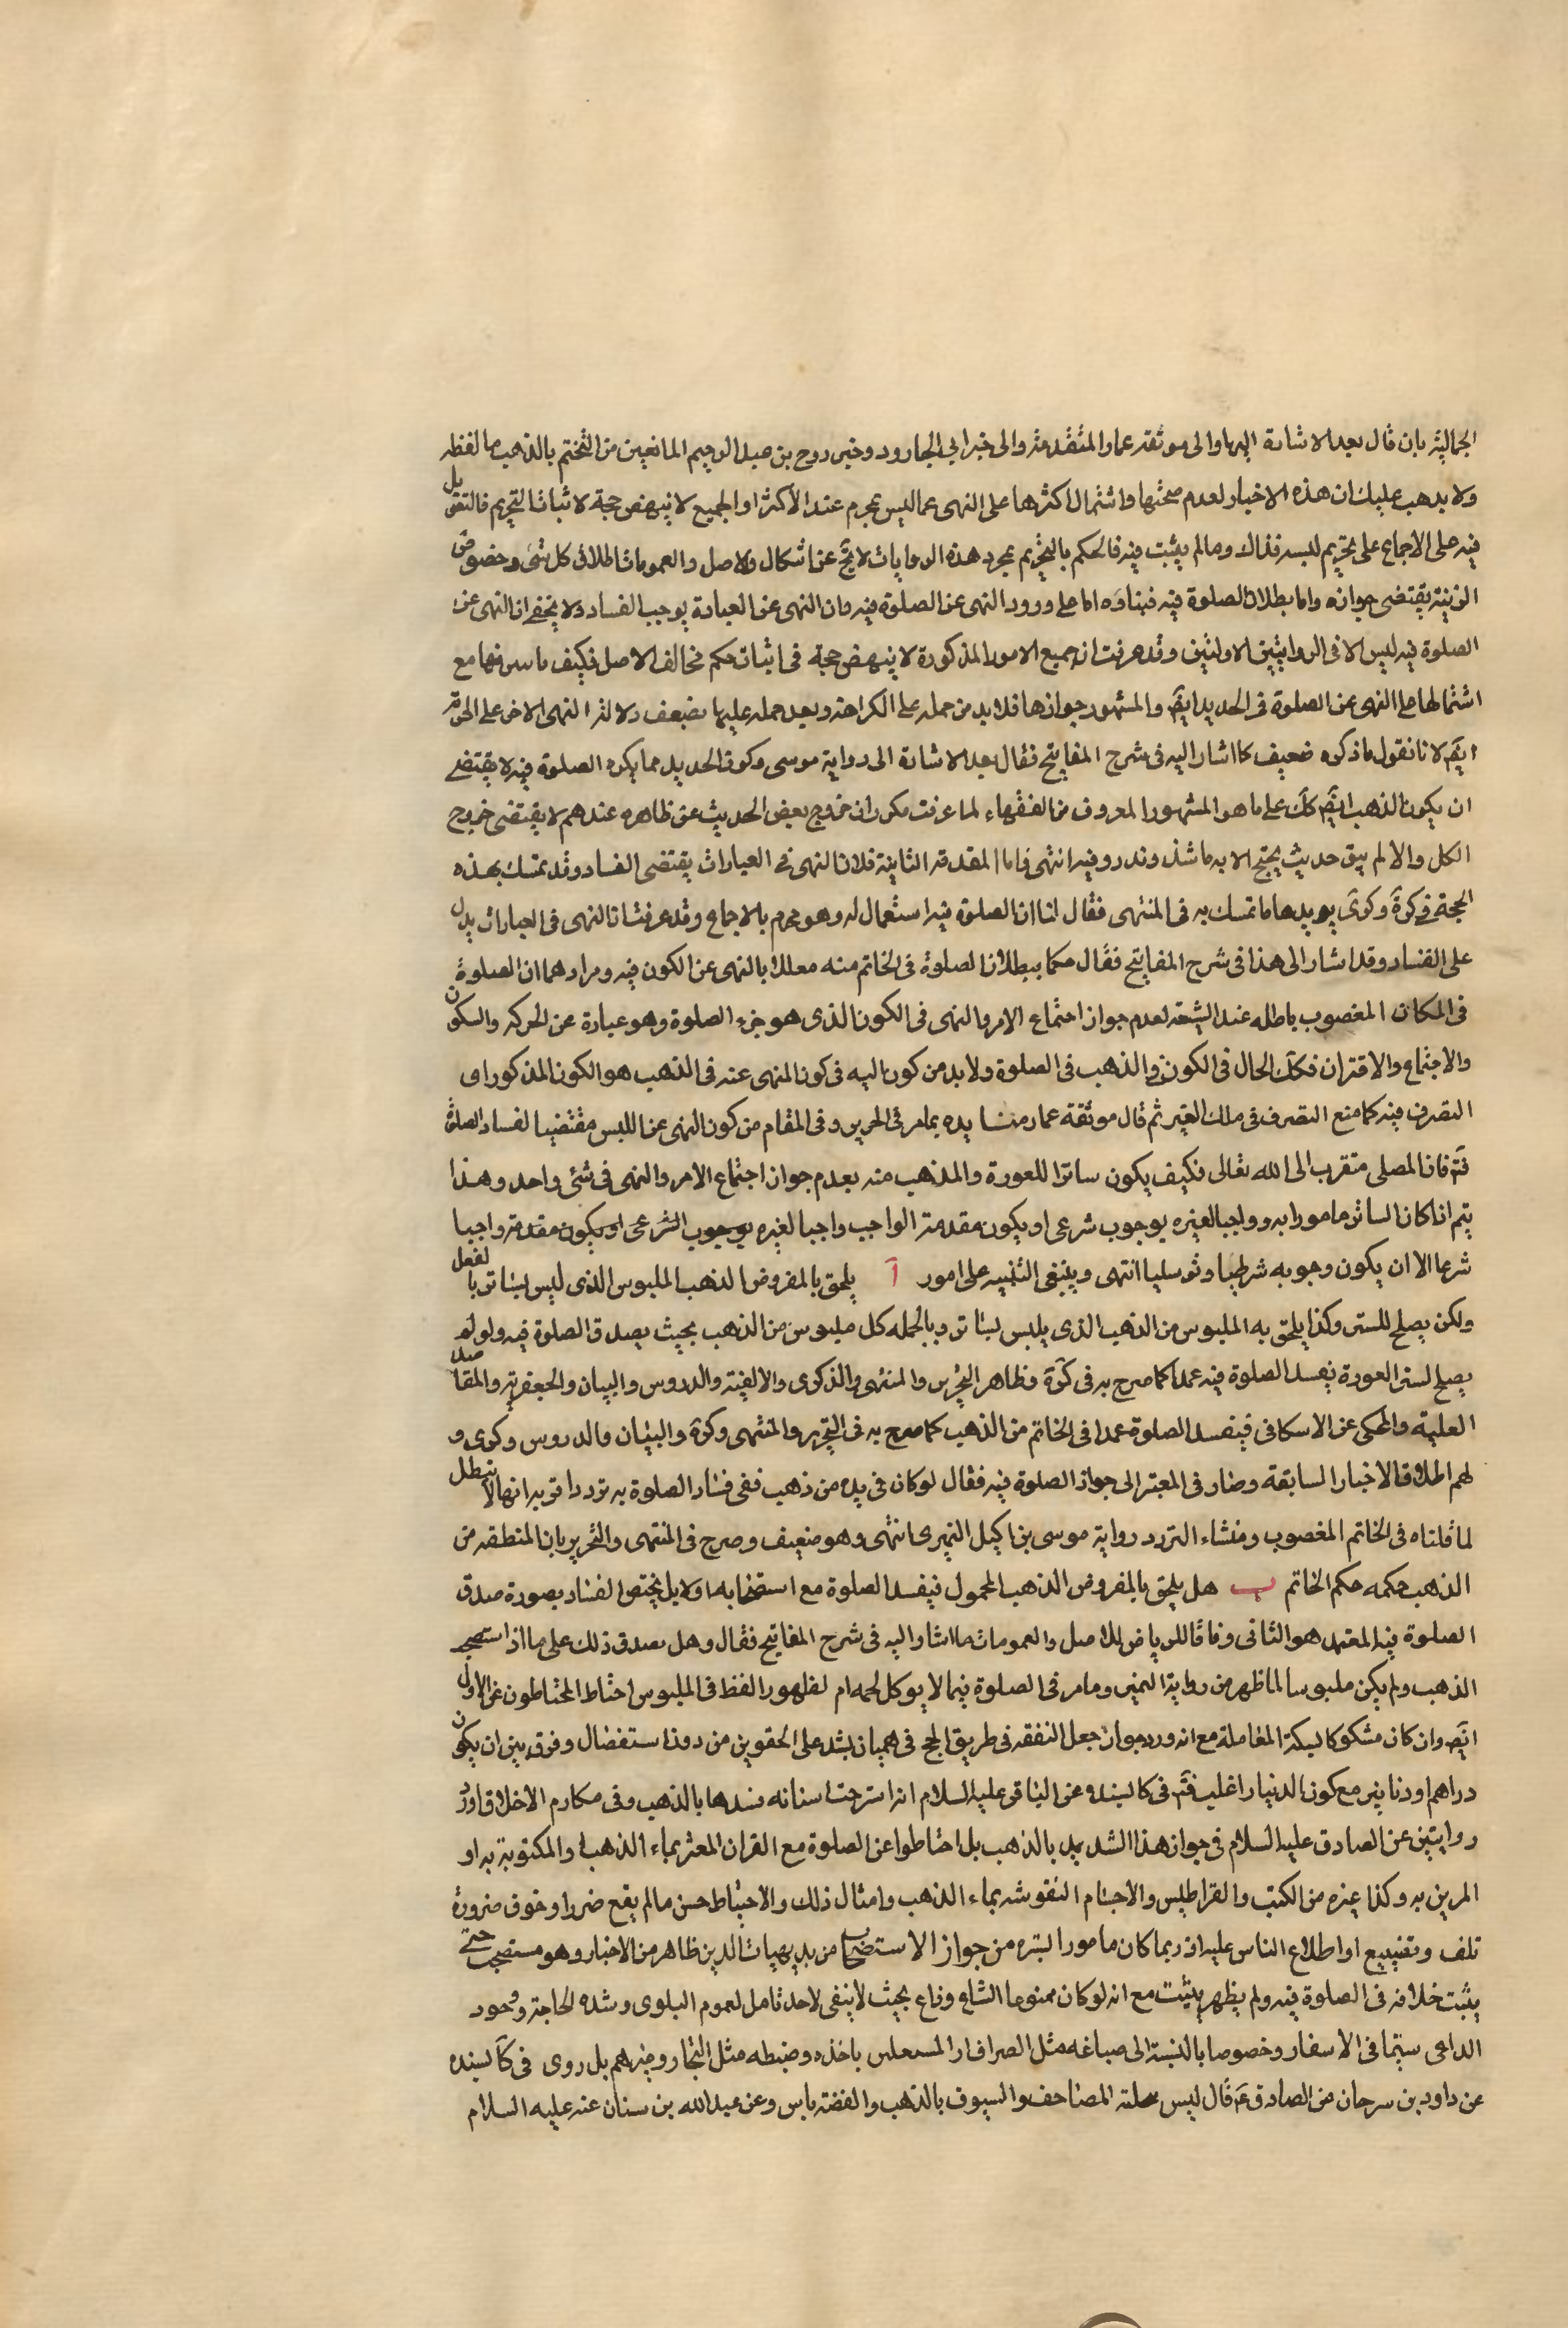 الجمالية بان قال بعد الاشارة اليها والى موثقة عمار المتقدمة والى خبر ابي الجارود وخبر روح بن عبد الرحيم المانعين من التختم بالذهب ما لفظه
ولا يذهب عليك ان هذه الاخبار لعدم صحتها واشتمال اكثرها على النهى عما ليس بمحرم عند الاكثر او الجميع لا ينهض حجة لاثبات التحريم فالتعويل
فيه على الاجماع على تحريم لبسه فذاك وما لم يثبت فيه فالحكم بالتحريم بمجرد هذه الروايات لا يخ عن اشكال والاصل والعمومات اطلاق كل شئ وخصوص
الزينة يقتضى جوازه واما بطلان الصلوة فيه فبناؤه اما على ورود النهى عن الصلوة فيه فان النهى عن العبادة يوجب الفساد ولا يخفى ان النهى عن
الصلوة فيه ليس الا فى الروايتين الاولتين وقد عرفت ان جميع الامور المذكورة لا ينهض حجة فى اثبات حكم مخالف الاصل فكيف ما سرفها مع
اشتمالها على النهى عن الصلوة فى الحديد ايض والمشهور جوازها فلا بد من حمله على الكراهة وبعد حمله عليها يضعف دلالة النهى الاخر على الحرمة
ايض لانا نقول ما ذكره ضعيف كما اشار اليه فى شرح المفاتيح فقال بعد الاشارة الى رواية موسى وكون الحديد مما يكره الصلوة فيه لا يقتضى
ان يكون الذهب ايض كك على ما هو المشهور المعروف من الفقهاء لما عرفت مكررا ان خروج بعض الحديث عن ظاهره عندهم لا يقتضى خروج
الكل والا لم يبق حديث يحتج الا به ما شذ وندر وفيه انتهى فاما المقدمة الثانية فلان النهى فى العبارات يقتضى الفساد وقد تمسك بهذه
الحجة فى كرة وكرى يويدها ما تمسك به فى المنتهى فقال لنا ان الصلوة فيه استعمال له وهو محرم بالاجماع وقد عرفت ان النهى فى العبارات يدل
على الفساد وقد اشار الى هذا فى شرح المفاتيح فقال حكما ببطلان الصلوة فى الخاتم منه معللا بالنهى عن الكون فيه ومرادهما ان الصلوة
فى المكان المغصوب باطله عند الشيعة لعدم جواز اجتماع الامر والنهى فى الكون الذى هو جزء الصلوة وهو عبارة عن الحركه والسكون
والاجتماع والاقتران فكك الحال فى الكون فى الذهب فى الصلوة ولا بد من كون اليه فى كون المنهى عنه فى الذهب هو الكون المذكور اى
التصرف فيه كما منع التصرف فى ملك الغير ثم قال موثقة عمار منشا يده بما مر فى الحرير وفى المقام من كون النهى عن اللبس مقتضيا لفساد الصلوة
فتم فان المصلى متقرب الى الله تعالى فكيف يكون ساترا للعورة والمذهب منه بعدم جواز اجتماع الامر والنهى فى شئ واحد وهذا
يتم اذا كان الساتر مامورا به وواجبا لغيره بوجوب شرعى او يكون مقدمة الواجب واجبا لغيره بوجوب الشرعى او يكون مقدمة واجبا
شرعا الا ان يكون وجوبه شرطيا وتوسليا انتهى وينبغى التنبيه على امور آ يلحق بالمفروض الذهب الملبوس الذى ليس بساتر بالفعل
ولكن يصلح للستر وكذا يلحق به الملبوس من الذهب الذى يلبس لساتر وبالجمله كل ملبوس من الذهب بحيث يصدق الصلوة فيه ولو لم
يصلح لستر العورة يفسد الصلوة فيه عمدا كما صرح به فى كرة وظاهر التحرير والمنتهى والذكرى والالفية والدروس والبيان والجعفرية والمقاصد
العلية والمحكى عن الاسكافى فيفسد الصلوة عمدا فى الخاتم من الذهب كما صرح به فى التحرير والمنتهى وكرة والبيان والدروس وكرى و
لهم اطلاق الاخبار السابقة وصار فى المعتبر الى جواز الصلوة فيه فقال لو كان فى يده من ذهب ففى فساد الصلوة به تردد اقربه انها لا تبطل
لما قلناه فى الخاتم المغصوب ومنشاء التردد رواية موسى بن اكيل النميرى انتهى وهو ضعيف وصرح فى المنتهى والتحرير بان المنطقه من
الذهب حكمه حكم الخاتم ب هل يلحق بالمفروض الذهب المحمول فيفسد الصلوة مع استصحابه او لا بل يختص الفساد بصورة صدق
الصلوة فيه المعتمد هو الثانى وفاقا للرياض للاصل والعمومات ما اشار اليه فى شرح المفاتيح فقال وهل يصدق ذلك على ما اذا استصحب
الذهب ولم يكن ملبوسا لما ظهر من رواية النميرى وما مر فى الصلوة فيما لا يوكل لحمه ام لظهور الفظ فى الملبوس احتاط المحتاطون عن الاول
ايض وان كان مشكوكا لسكة المعاملة مع انه ورد جواز جعل النفقه فى طريق الحج فى هميان يشد على الحقوين من دون استفصال وفرق بين ان يكون
دراهم او دنانير مع كون الدنيار اغلب فتم فى كا بسنده عن الباقر عليه السلام انه استرخت اسنانه فشدها بالذهب وفى مكارم الاخلاق اورد
روايتين عن الصادق عليه السلام فى جواز هذا الشد يد بالذهب بل احتاطوا عن الصلوة مع القران المعشر بماء الذهب او المكتوبة به او
المزين به وكذا غيره من الكتب والقراطيس والاجسام النقوشه بماء الذهب وامثال ذلك والاحتياط حسن ما لم يقع ضررا وخوف ضرورة
تلف وتضييع او اطلاع الناس عليه اذ ربما كان مامورا بستره من جواز الاستصحاب من بديهيات الدين ظاهر من الاخبار وهو مستصحب حتى
يثبت خلافه فى الصلوة فيه ولم يظهر يثبت مع انه لو كان ممنوعا لشاع وذاع بحيث لا ينفى لاحد تامل لعموم البلوى وشده الحاجة ووجود
الداعى سيما فى الاسفار وخصوصا بالنسبة الى صباغه مثل الصراف باخذه وضبطه مثل التجار وغيرهم بل روى فى كا بسنده
عن داود بن سرحان عن الصادق ع قال ليس بحلية المصاحف والسيوف بالذهب والفضة باس وعن عبد الله بن سنان عنه عليه السلام